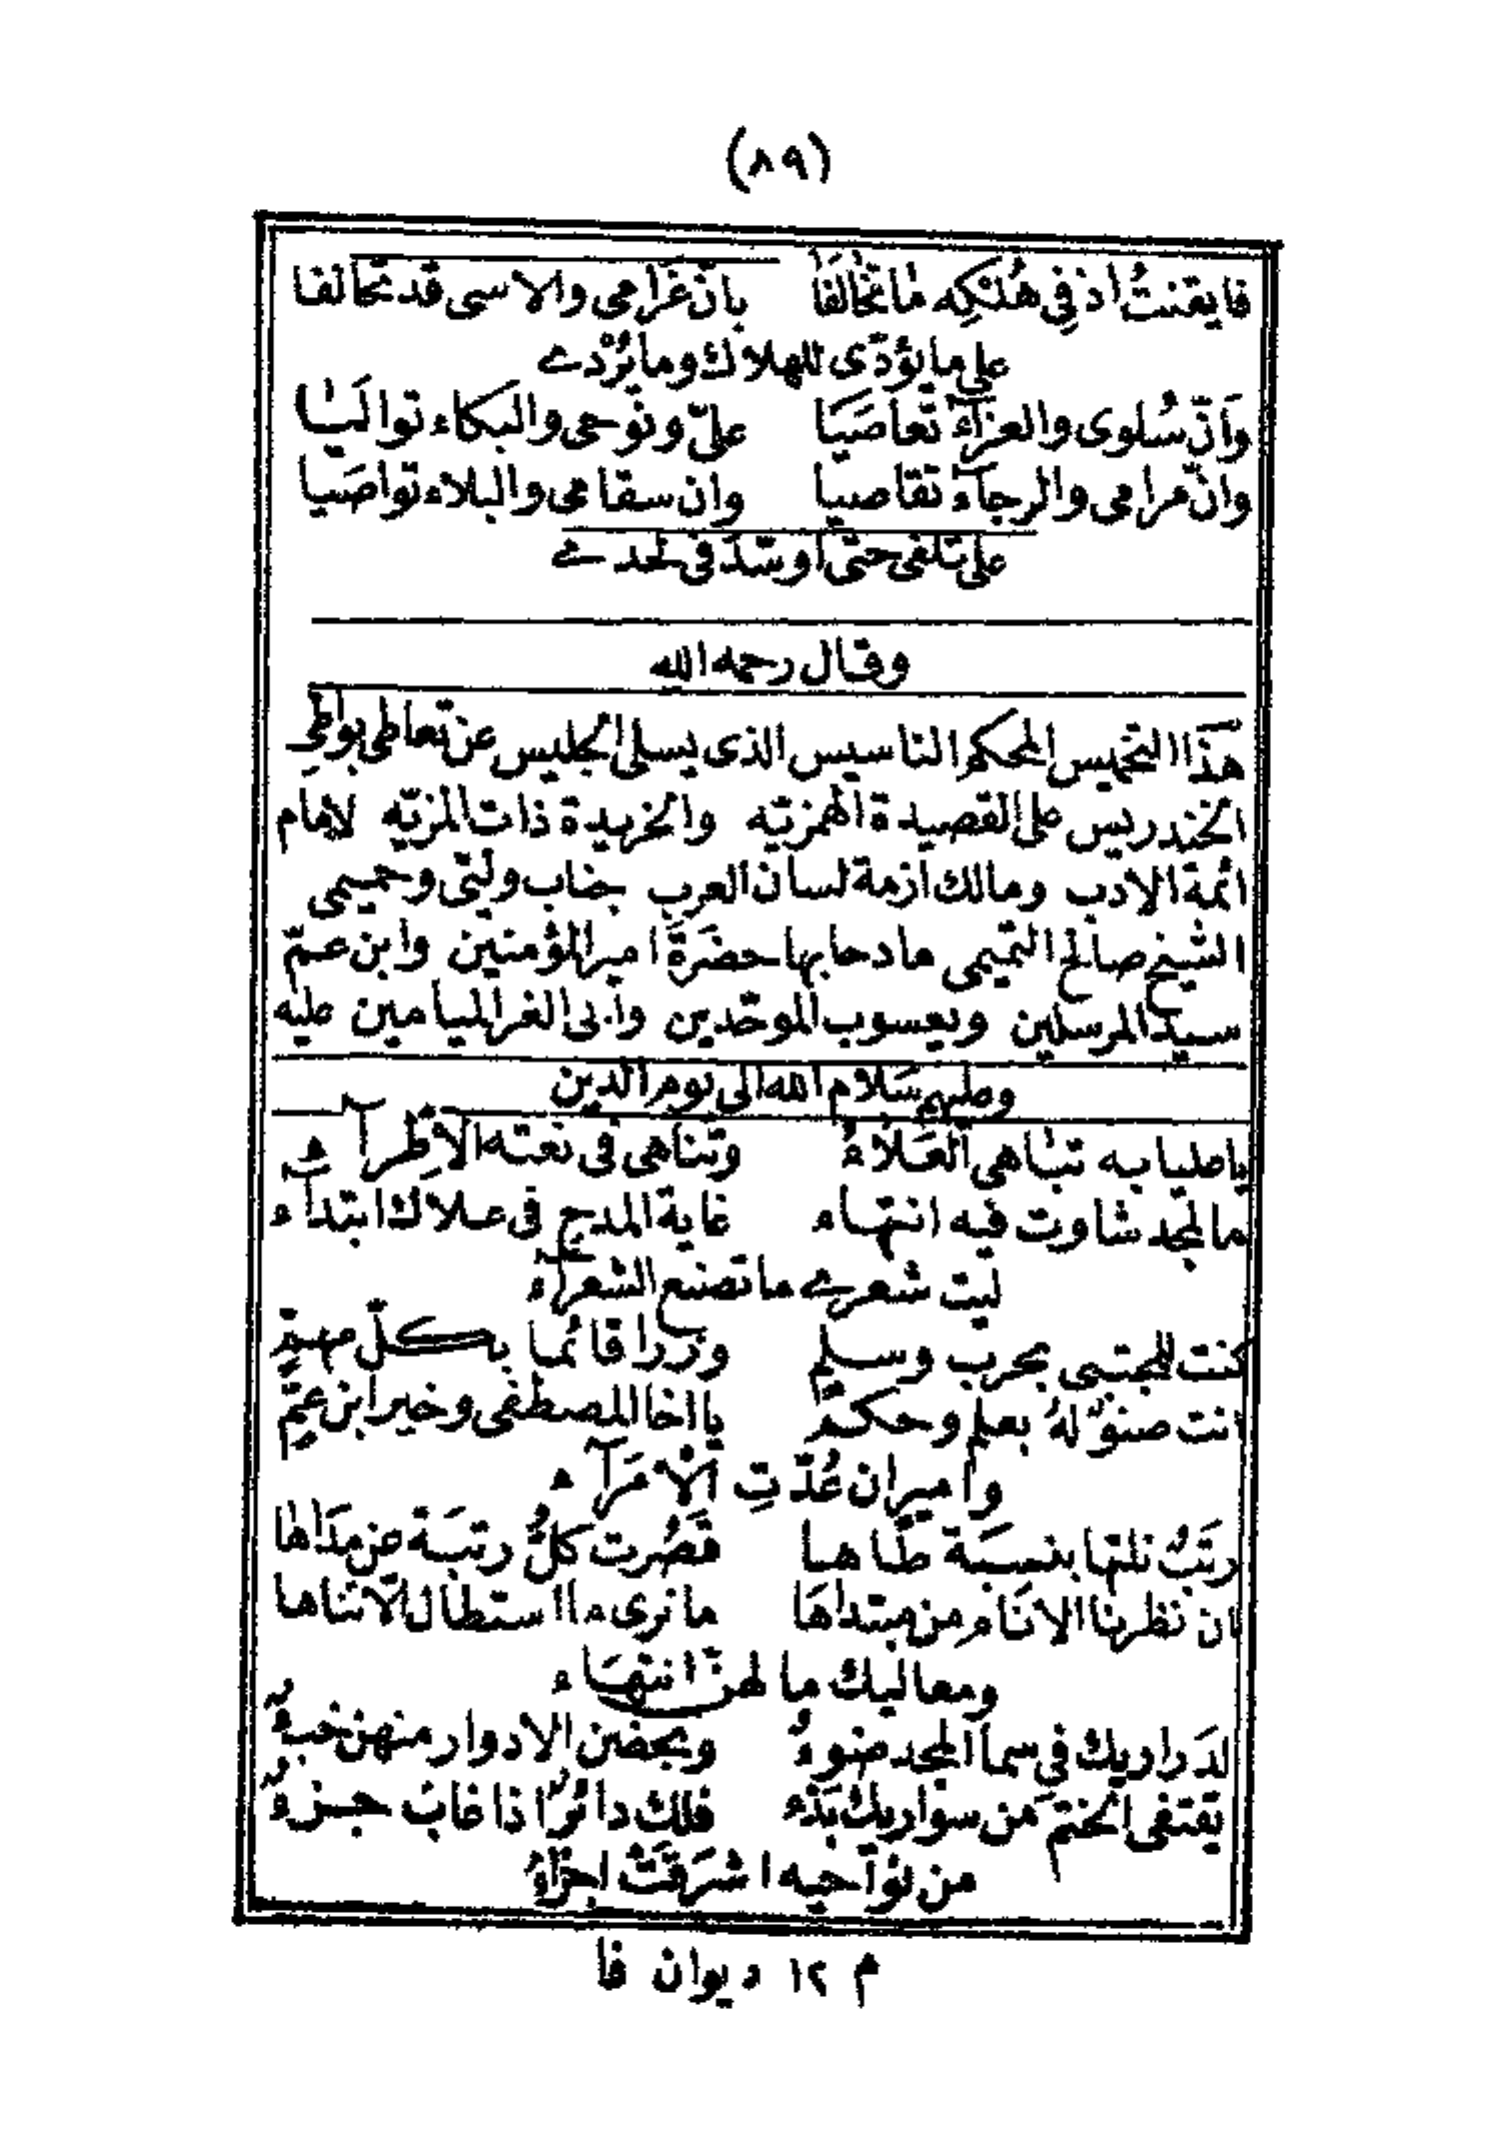 (٨٩)
فايقنتُ اذ في هُلكِه ما تخالَفَا بانّ غرامى والاسى قد تحالفا
على ما يؤدّى للهلاك وما يُرْدے
وَانّ سُلوى والعزآءَ تعاصَيَا علىّ ونوحى والبكاء تواليا
وانّ مرامى والرجآءَ تقاصيا وان سقامى والبلاء تواصَيا
على تلفى حتى اوسّدَ فى لحدے
وقال رحمه الله
هَذَا التخميس المحكم التاسيس الذى يسلى الجليس عن تعاطى بواطى
الخندريس على القصيدة الهمزيّه والخريدة ذات المزيّه لامام
ائمة الادب ومالك ازمة لسان العرب جناب وليّى وحميمى
الشيخ صالح التميمى مادحا بها حضرَةَ امير المؤمنين وابن عمّ
سيد المرسلين ويعسوب الموحّدين وأبى الغر الميامين عليه
وعليهم سَلام الله الى يوم الدين
يا عليا به تباهى العَلاءُ وتناهى فى نعته الاِطرآء
ما لمجد شاوت فيه انتهاء غاية المدح فى علاك ابتداء
ليت شعرے ما تصنع الشعرآء
كنت للمجتبى بحرب وسلمٍ وزرا قائما بكلّ مهمّ
انت صنوٌ لهُ بعلم وحكم يا اخا المصطفى وخير ابن عمٍّ
وامير ان عُدّتِ الاُمَرآء
رتَبٌ نلتها بنسبَة طاها قَصُرت كلُّ رتبَة عن مدَاها
ان نظرنا الانَام من مبتداهَا ما نرى ما استطال الّا تناها
ومعاليك ما لهنّ انتهَاء
لدَراريك في سما المجد ضوءُ وبحضن الادوار منهن خبءٌ
يقتفى الختمَ من سواريك بَدْء فلك دائرٌ اذا غابَ جزءٌ
من نوَاحيه اشرَقَتْ اجزآءُ
م ١٢ ديوان فا